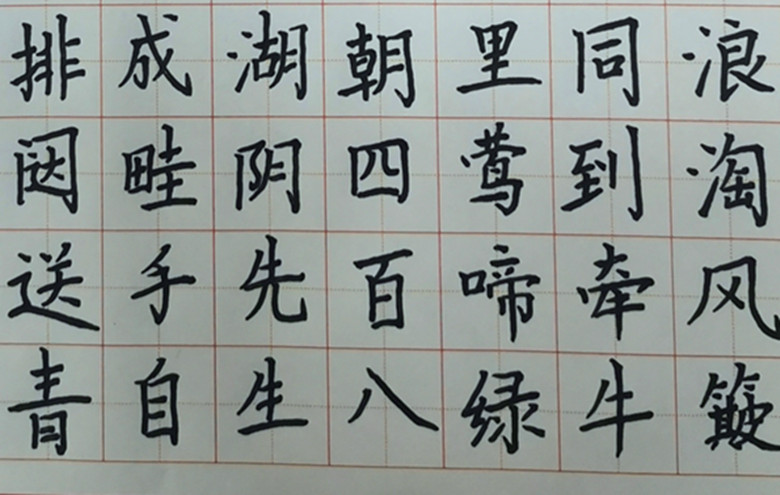 浪淘风簸
同到牵牛
里莺啼绿
朝四百八
湖阴先生
成畦手自
排闼送青